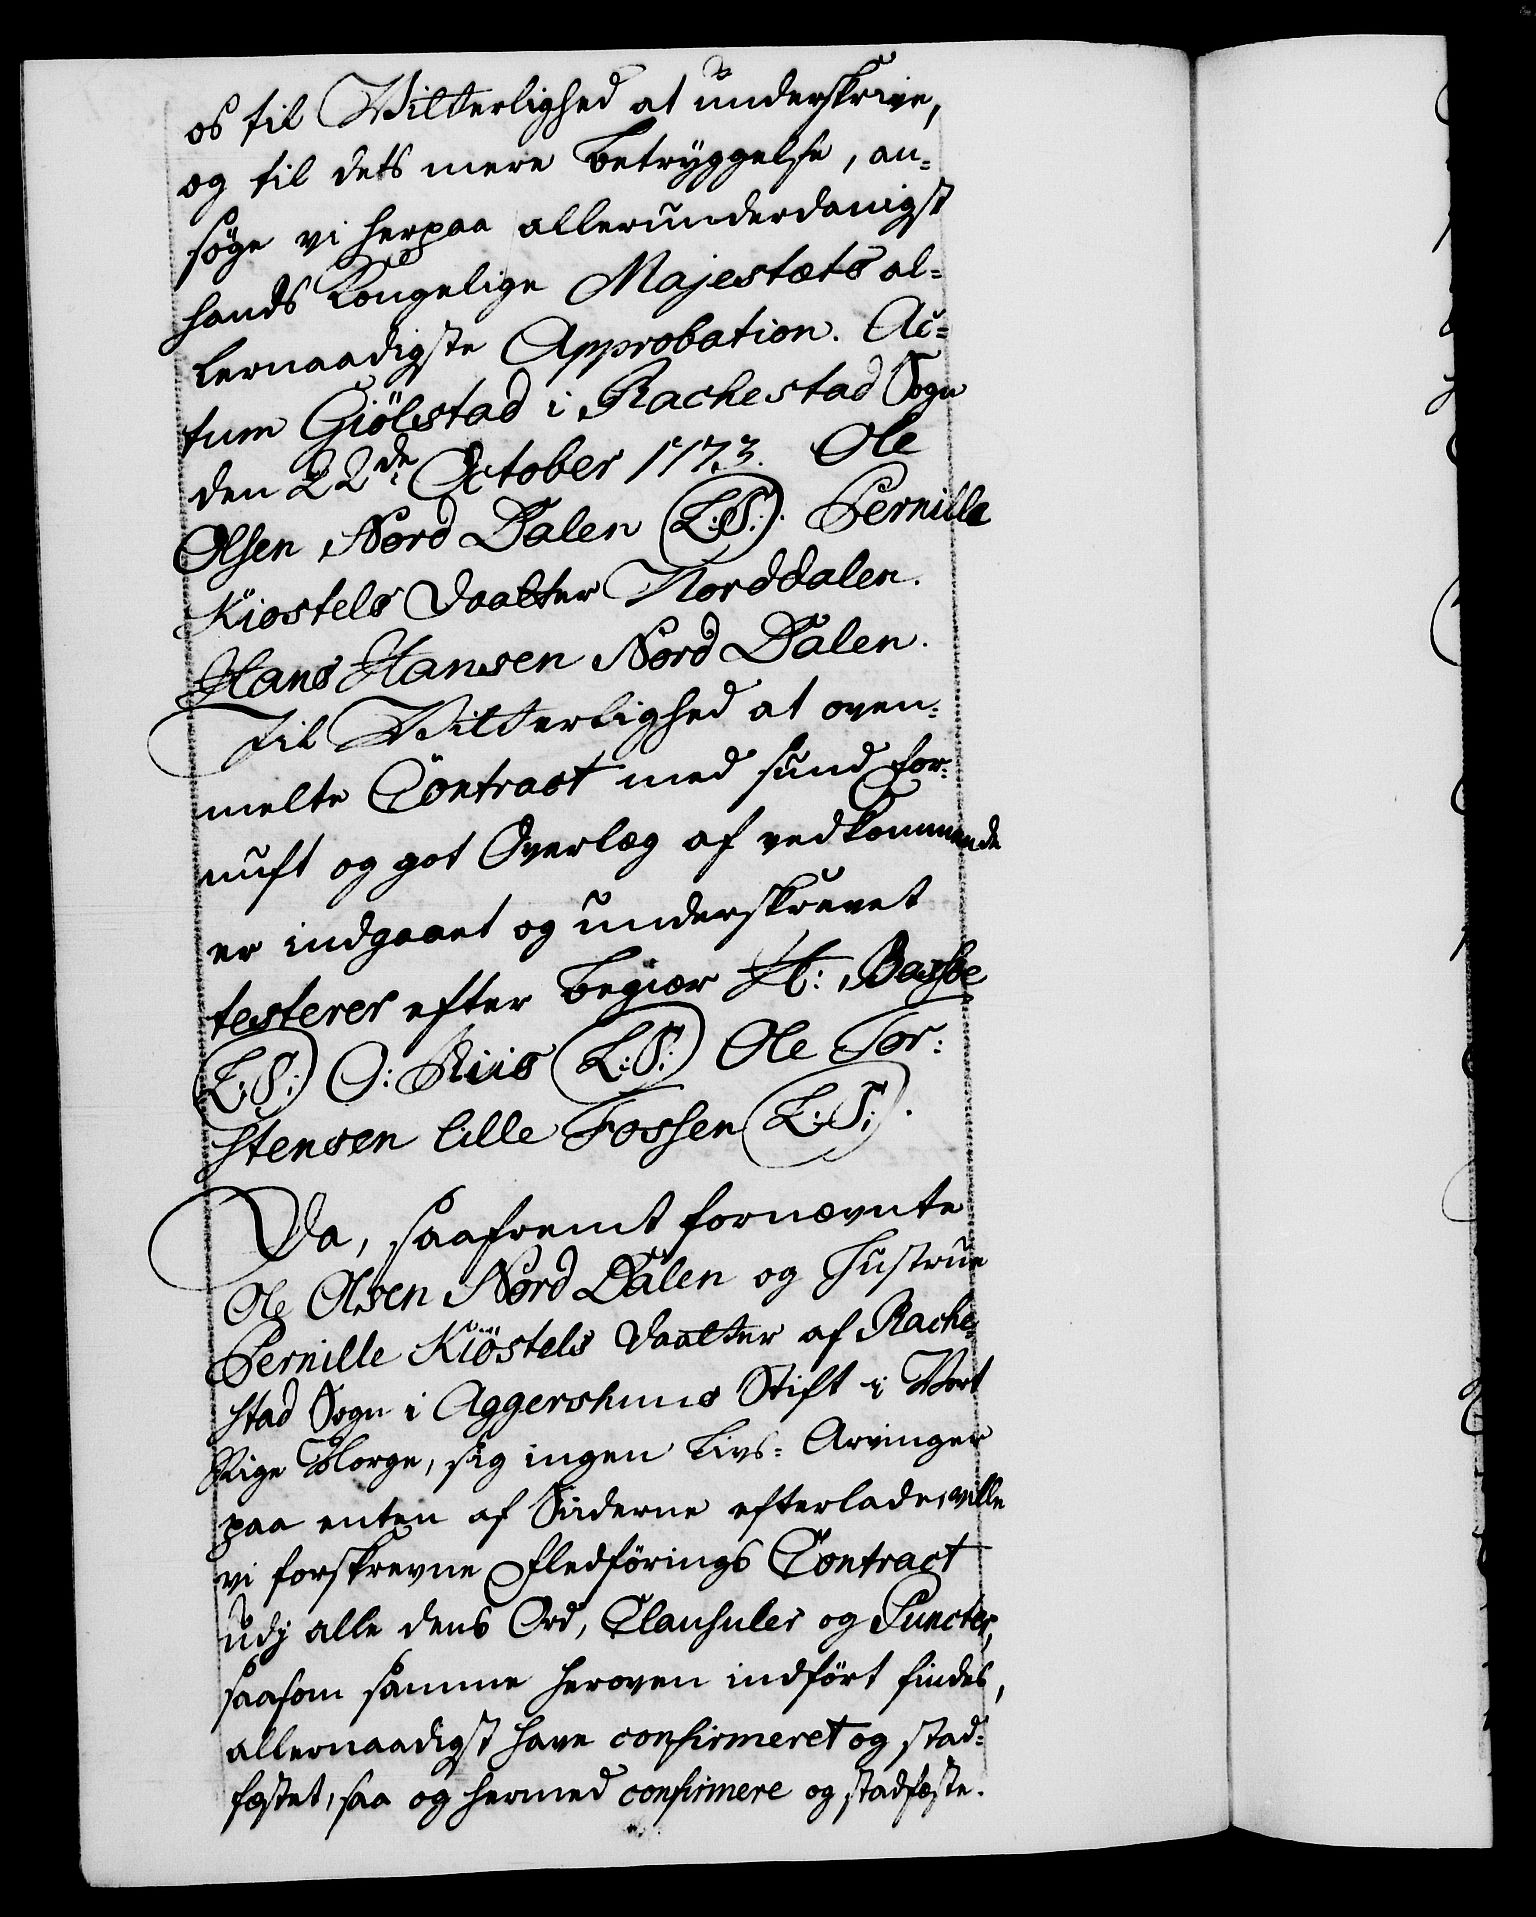 os til Vitterlighed at underskrive,
og til dets mere betryggelse, an-
søge vi herpaa allerunderdanigst
hands Kongelige Majestæts al-
lernaadigste Approbation. Ac-
tum Giölstad i Rachestad Sogn
den 22de October 1773. Ole
Olsen Nord Dalen (L:S:). Pernille
Kiostels Daatter Norddalen.
Hans Hansen Nord Dalen.
Til Vitterlighed at oven-
melte Contract med sund for-
nuft og got Overlæg af vedkommende
er indgaaet og underskrevet
testerer efter begiær H:
(L:S:) O: Riis (L:S:) Ole Tor-
stensen lille Fossen (L:S:).
Da, saafremt fornævnte
Ole Olsen Nord Dalen og Hustrue
Pernille Kiöstels Daatter af Rache-
stad Sogn i Aggershuus Stift i Vort
Rige Norge, sig ingen Livs-Arvinger
paa enten af Siiderne efterlade, ville
vi forskrevne Fledförings Contract
udj alle dens Ord, Clausuler og Puncter,
saasom samme heroven indført findes,
allernaadigst have confirmeret og stad-
fæstet, saa og hermed confirmere og stadfæste.